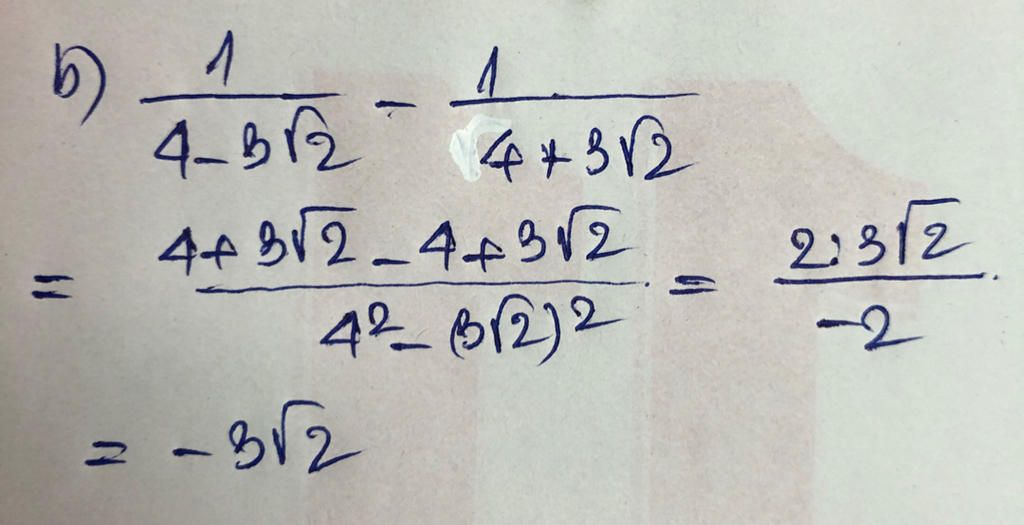 b) 1/(4-3√2) - 1/(4+3√2)
= (4+3√2-4+3√2)/(4²-(3√2)²) = (2·3√2)/(-2)
= -3√2